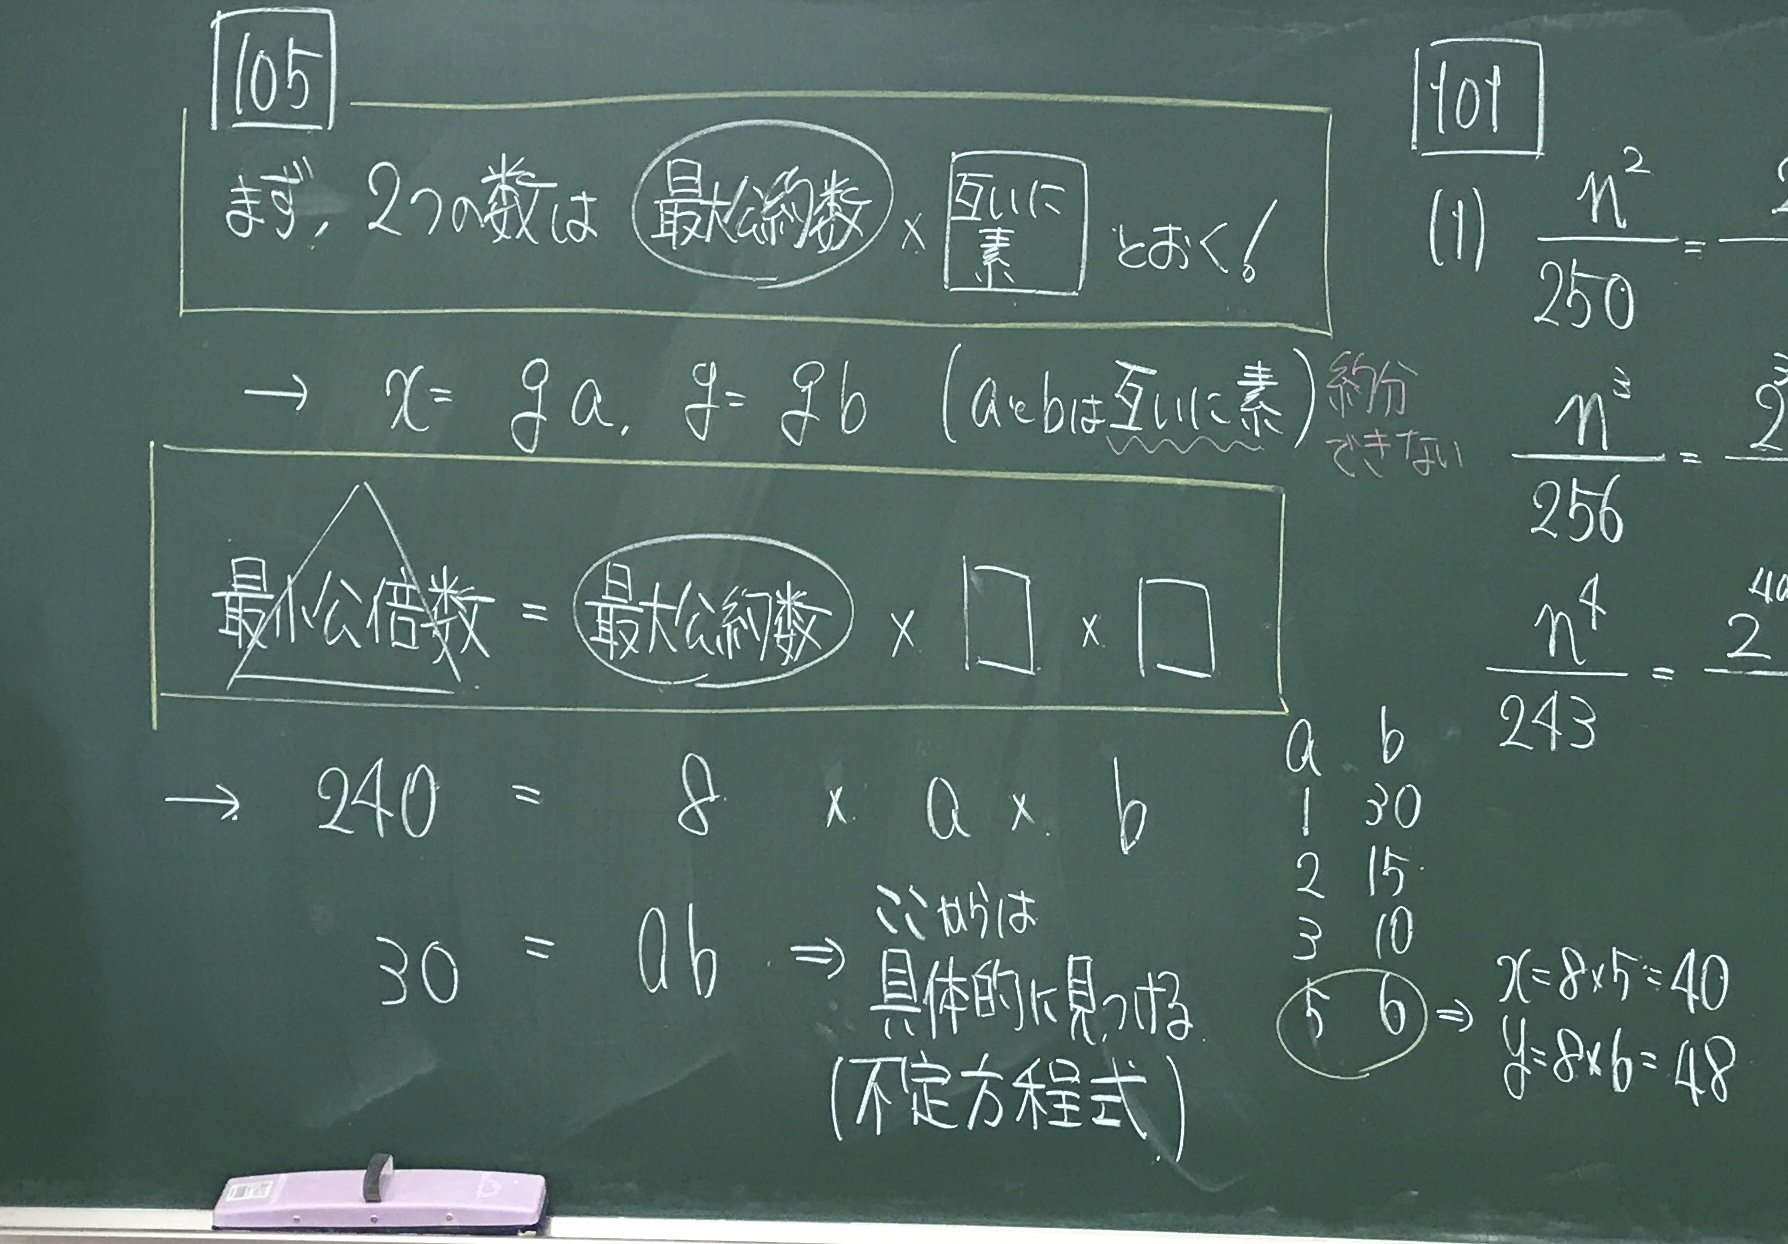 105
まず, 2つの数は 最大公約数 × 互いに素 とおく!
→ x = ga, y = gb (aとbは互いに素) 約分できない
最小公倍数 = 最大公約数 × □ × □
→ 240 = 8 × a × b
30 = ab ⇒ ここからは
具体的に見つける
(不定方程式)
a b
1 30
2 15
3 10
5 6 ⇒ x=8×5=40
y=8×6=48
101
(1) n²/250 = 2
n³/256 = 2³
n⁴/243 = 2⁴ᵃ